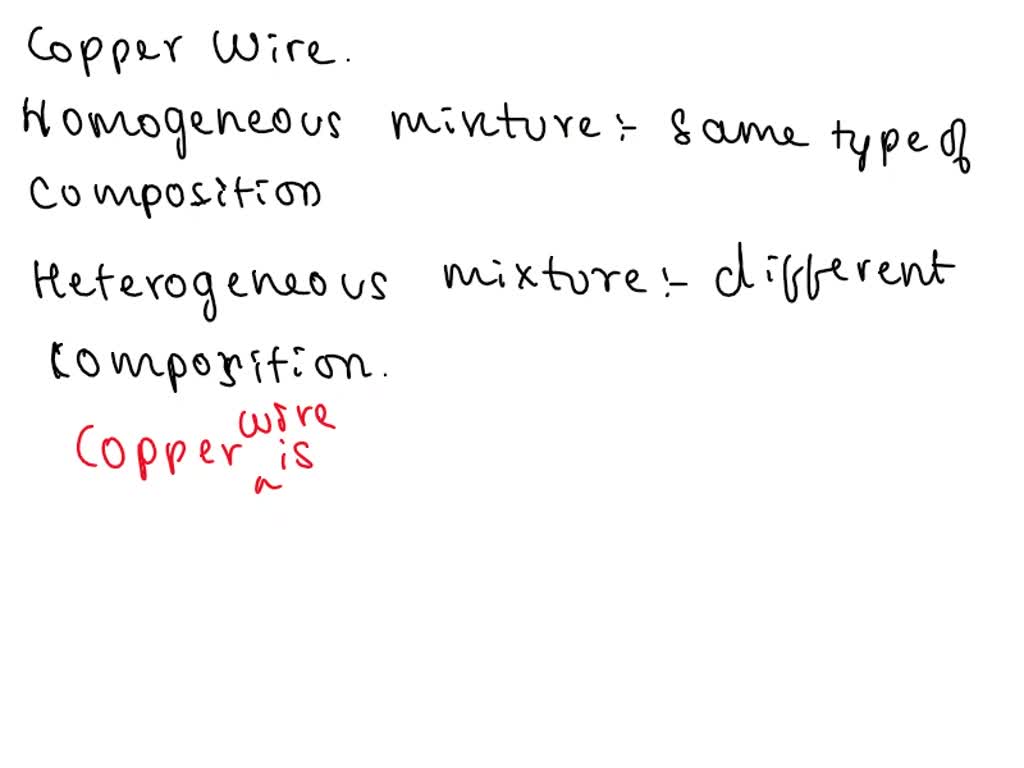 Copper Wire.
Homogeneous mixture :- same type of
Composition
Heterogeneous mixture :- different
Composition.
Copper wire is